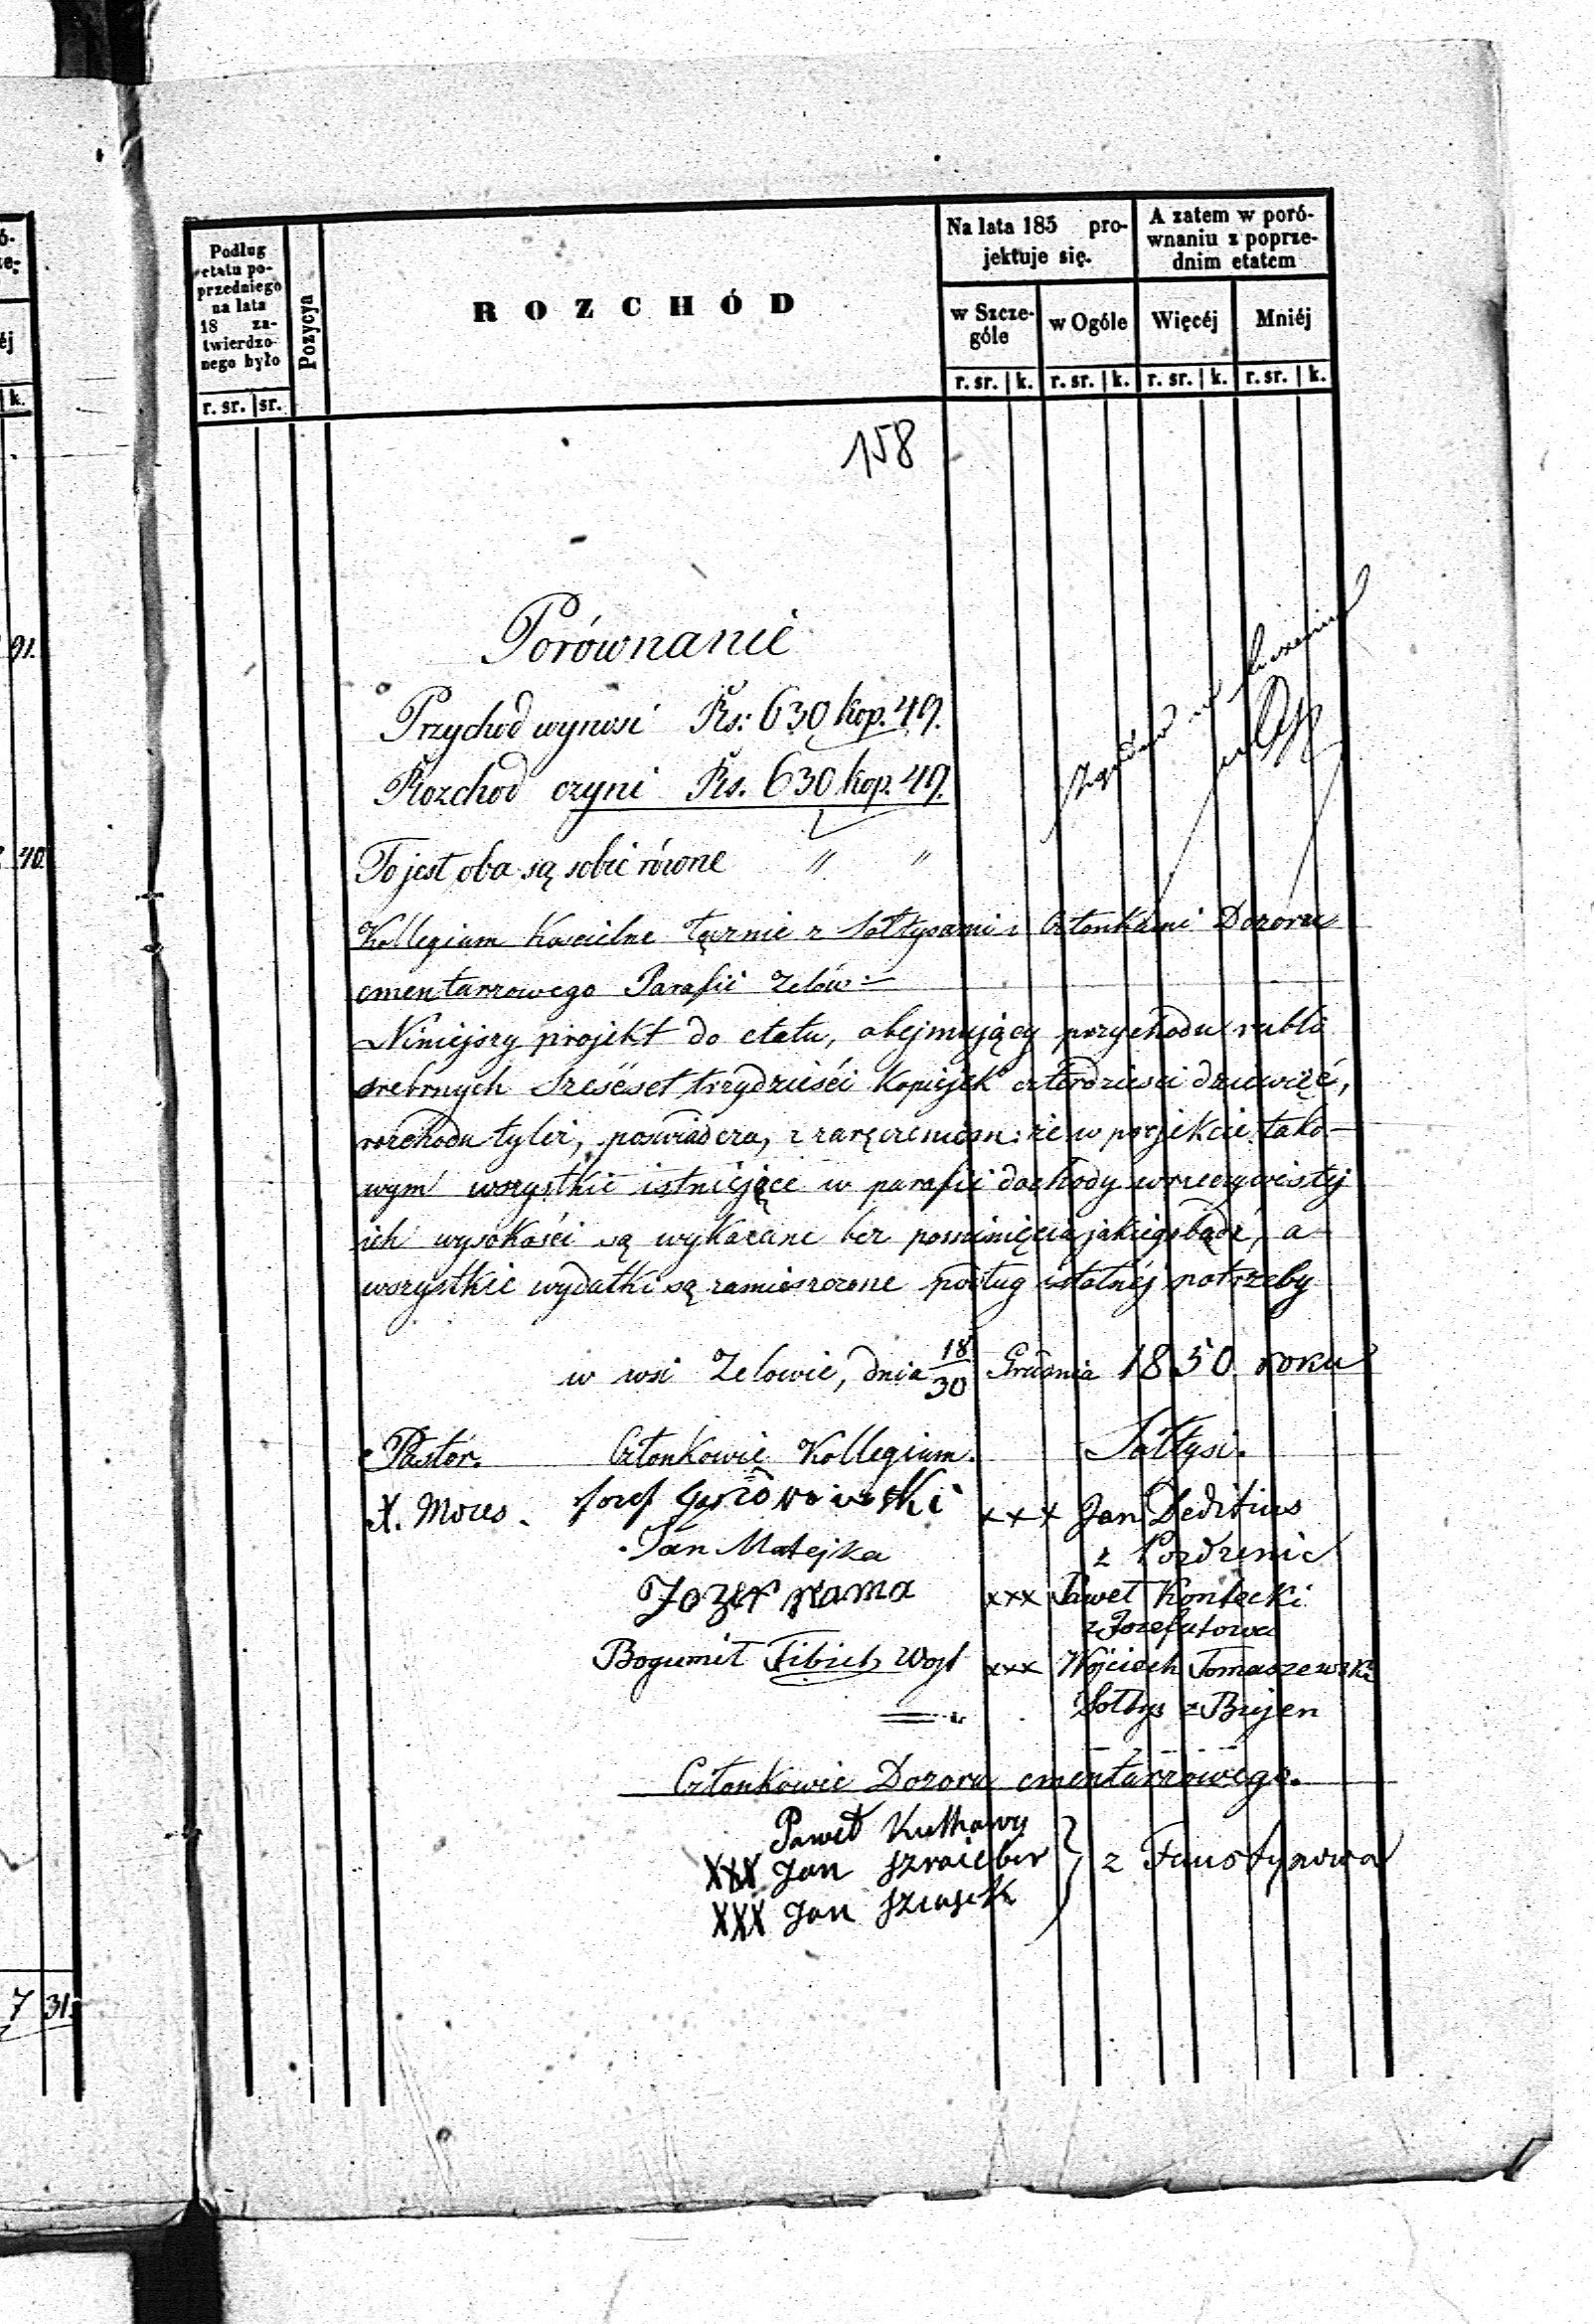 ó-
e-
éj
k.
91.
40.
7 31.
Podług
etatu po-
przedniego
na lata
18 za-
twierdzo-
nego było
r. sr. sr.
Pozycya
ROZCHÓD
Na lata 185 pro-
jektuje się.
w Szcze-
góle
w Ogóle
r. sr. k. r. sr. k.
A zatem w poró-
wnaniu z poprze-
dnim etatem
Więcéj Mniéj
r. sr. k. r. sr. k.
158
Porównanie
Przychod wynosi Rs: 630 kop. 49.
Rozchod czyni Rs. 630 kop. 49.
To jest oba są sobie równe " "
Kollegium Kościelne łącznie z Sołtysami i Członkami Dozoru
cmentarzowego Parafii Zelów
Niniejszy projekt do etatu, obejmujący przychodu rubli
srebrnych Sześćset trzydzieści Kopiejek czterdzieści dziewięć,
rozchodu tyleż, poświadcza, z zaręczeniem: że w projekcie tako-
wym wszystkie istniejące w parafii dochody w rzeczywistéj
ich wysokości są wykazane bez pominięcia jakiegobądź, a
wszystkie wydatki są zamieszczone podług istotnéj potrzeby
w wsi Zelowie, dnia 18/30 Grudnia 1850 roku
Pastor. Członkowie Kollegium. Sołtysi.
X. Mozes. Jozef
xxx Jan Deditius
Jan Matejka
z Pozdzenic
Jozef
xxx Paweł Kontecki
z Jozefatowa
Bogumił Fibich Wojt xxx Wojciech Tomaszewski
Sołtys z Bujen
Członkowie Dozoru cmentarzowego.
Paweł Kulhawy
XXX Jan Szraiber z Faustynowa
XXX Jan